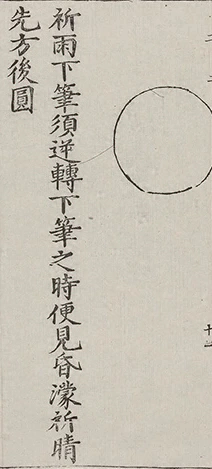 祈雨下筆須逆轉下筆之時便見昏濛祈晴
先方後圓